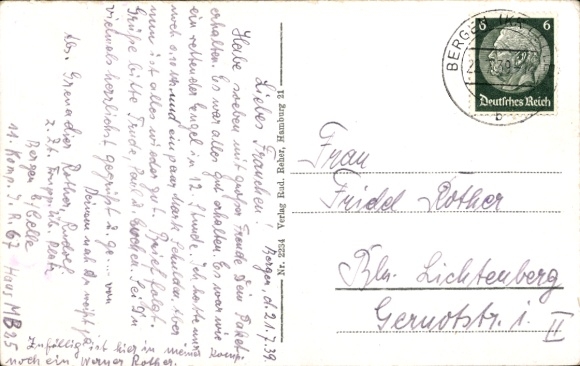 Liebes Frauchen! Bergen, d. 21.7.39.
Habe soeben mit großer Freude Dein Paket
erhalten. Es war alles gut erhalten. Es war wie
ein rettender Engel in 12. Stunde. Ich hatte nur
noch 0.10 und ein paar Mark Schulden. Aber
nun ist alles wieder gut. Brief folgt.
Grüße bitte Trude, Paul u. Sei Du
vielmals herzlichst gegrüßt u. ge... von
Deinem
Abs. Grenadier Rother, Rudolf
z. Zt. Truppl. Üb. Platz
Bergen b. Celle
11. Komp. J. R. 67 Haus MB 25
Zufällig ist hier in meiner Komp.
noch ein Werner Rother.
Nr. 2234 Verlag Rud. Reher, Hamburg 21
BERGEN
39
b
6 6
Deutsches Reich
Frau
Fridel Rother
Bln. Lichtenberg
Gernotstr. 1. II